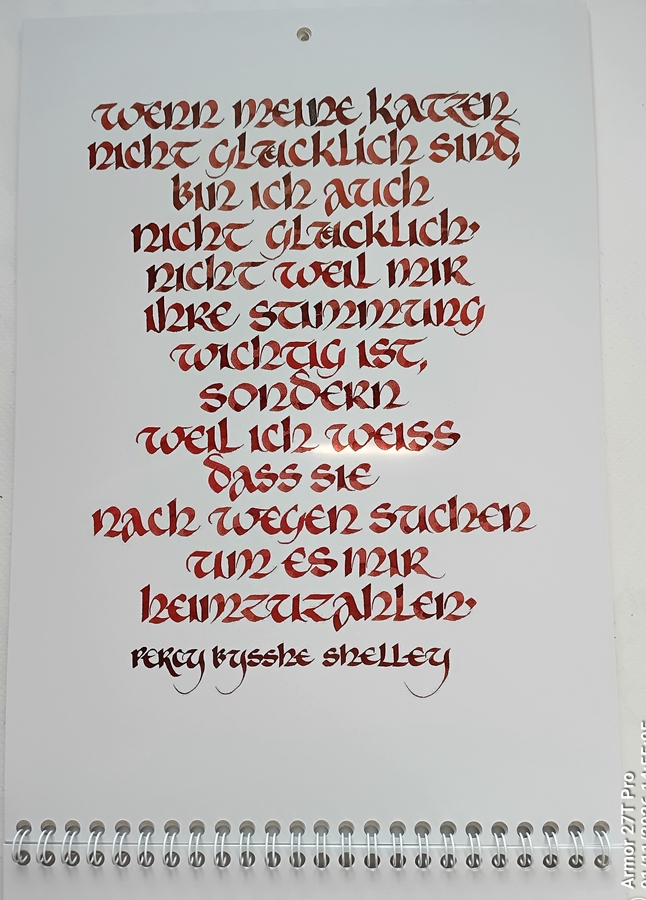 wenn meine katzen
nicht glücklich sind,
bin ich auch
nicht glücklich.
nicht weil mir
ihre stimmung
wichtig ist,
sondern
weil ich weiss
dass sie
nach wegen suchen
um es mir
heimzuzahlen.
percy bysshe shelley
Armor 27T Pro